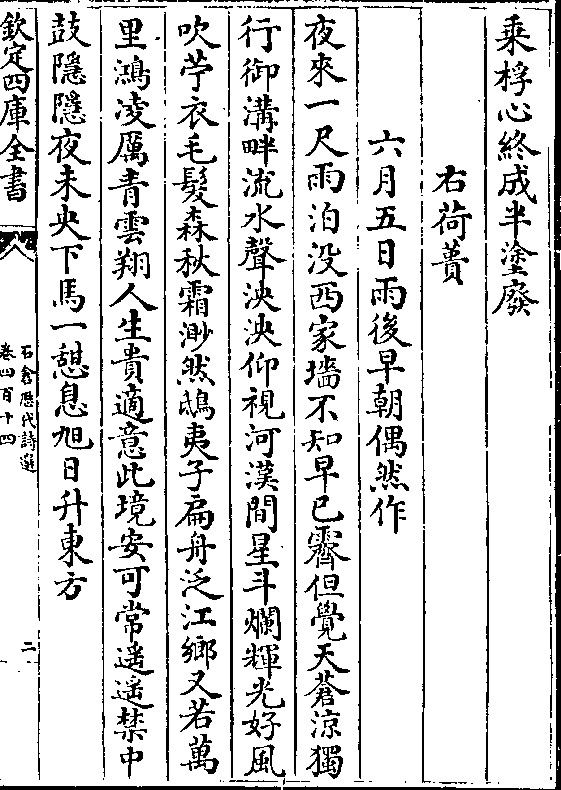 乘桴心終成半塗廢
右荷蕢
六月五日雨後早朝偶然作
夜來一尺雨泊没西家墻不知早已霽但覺天蒼涼獨
行御溝畔流水聲泱泱仰視河漢間星斗爛輝光好風
吹苧衣毛髮森秋霜渺然鴟夷子扁舟泛江鄉又若萬
里鴻凌厲青雲翔人生貴適意此境安可常遥遥禁中
鼓隱隱夜未央下馬一憇息旭日升東方
欽定四庫全書
石倉歷代詩選
卷四百十四
二